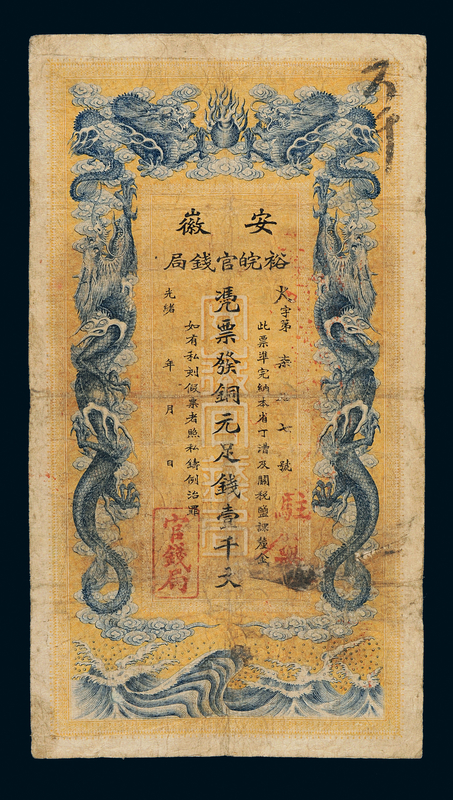 安徽
裕皖官錢局
大字第柒
七號
此票準完納本省丁漕及關稅鹽課釐金
憑票發銅元足錢壹千文
如有私刻假票者照私鑄例治罪
光緒 年 月 日
官錢局
駐